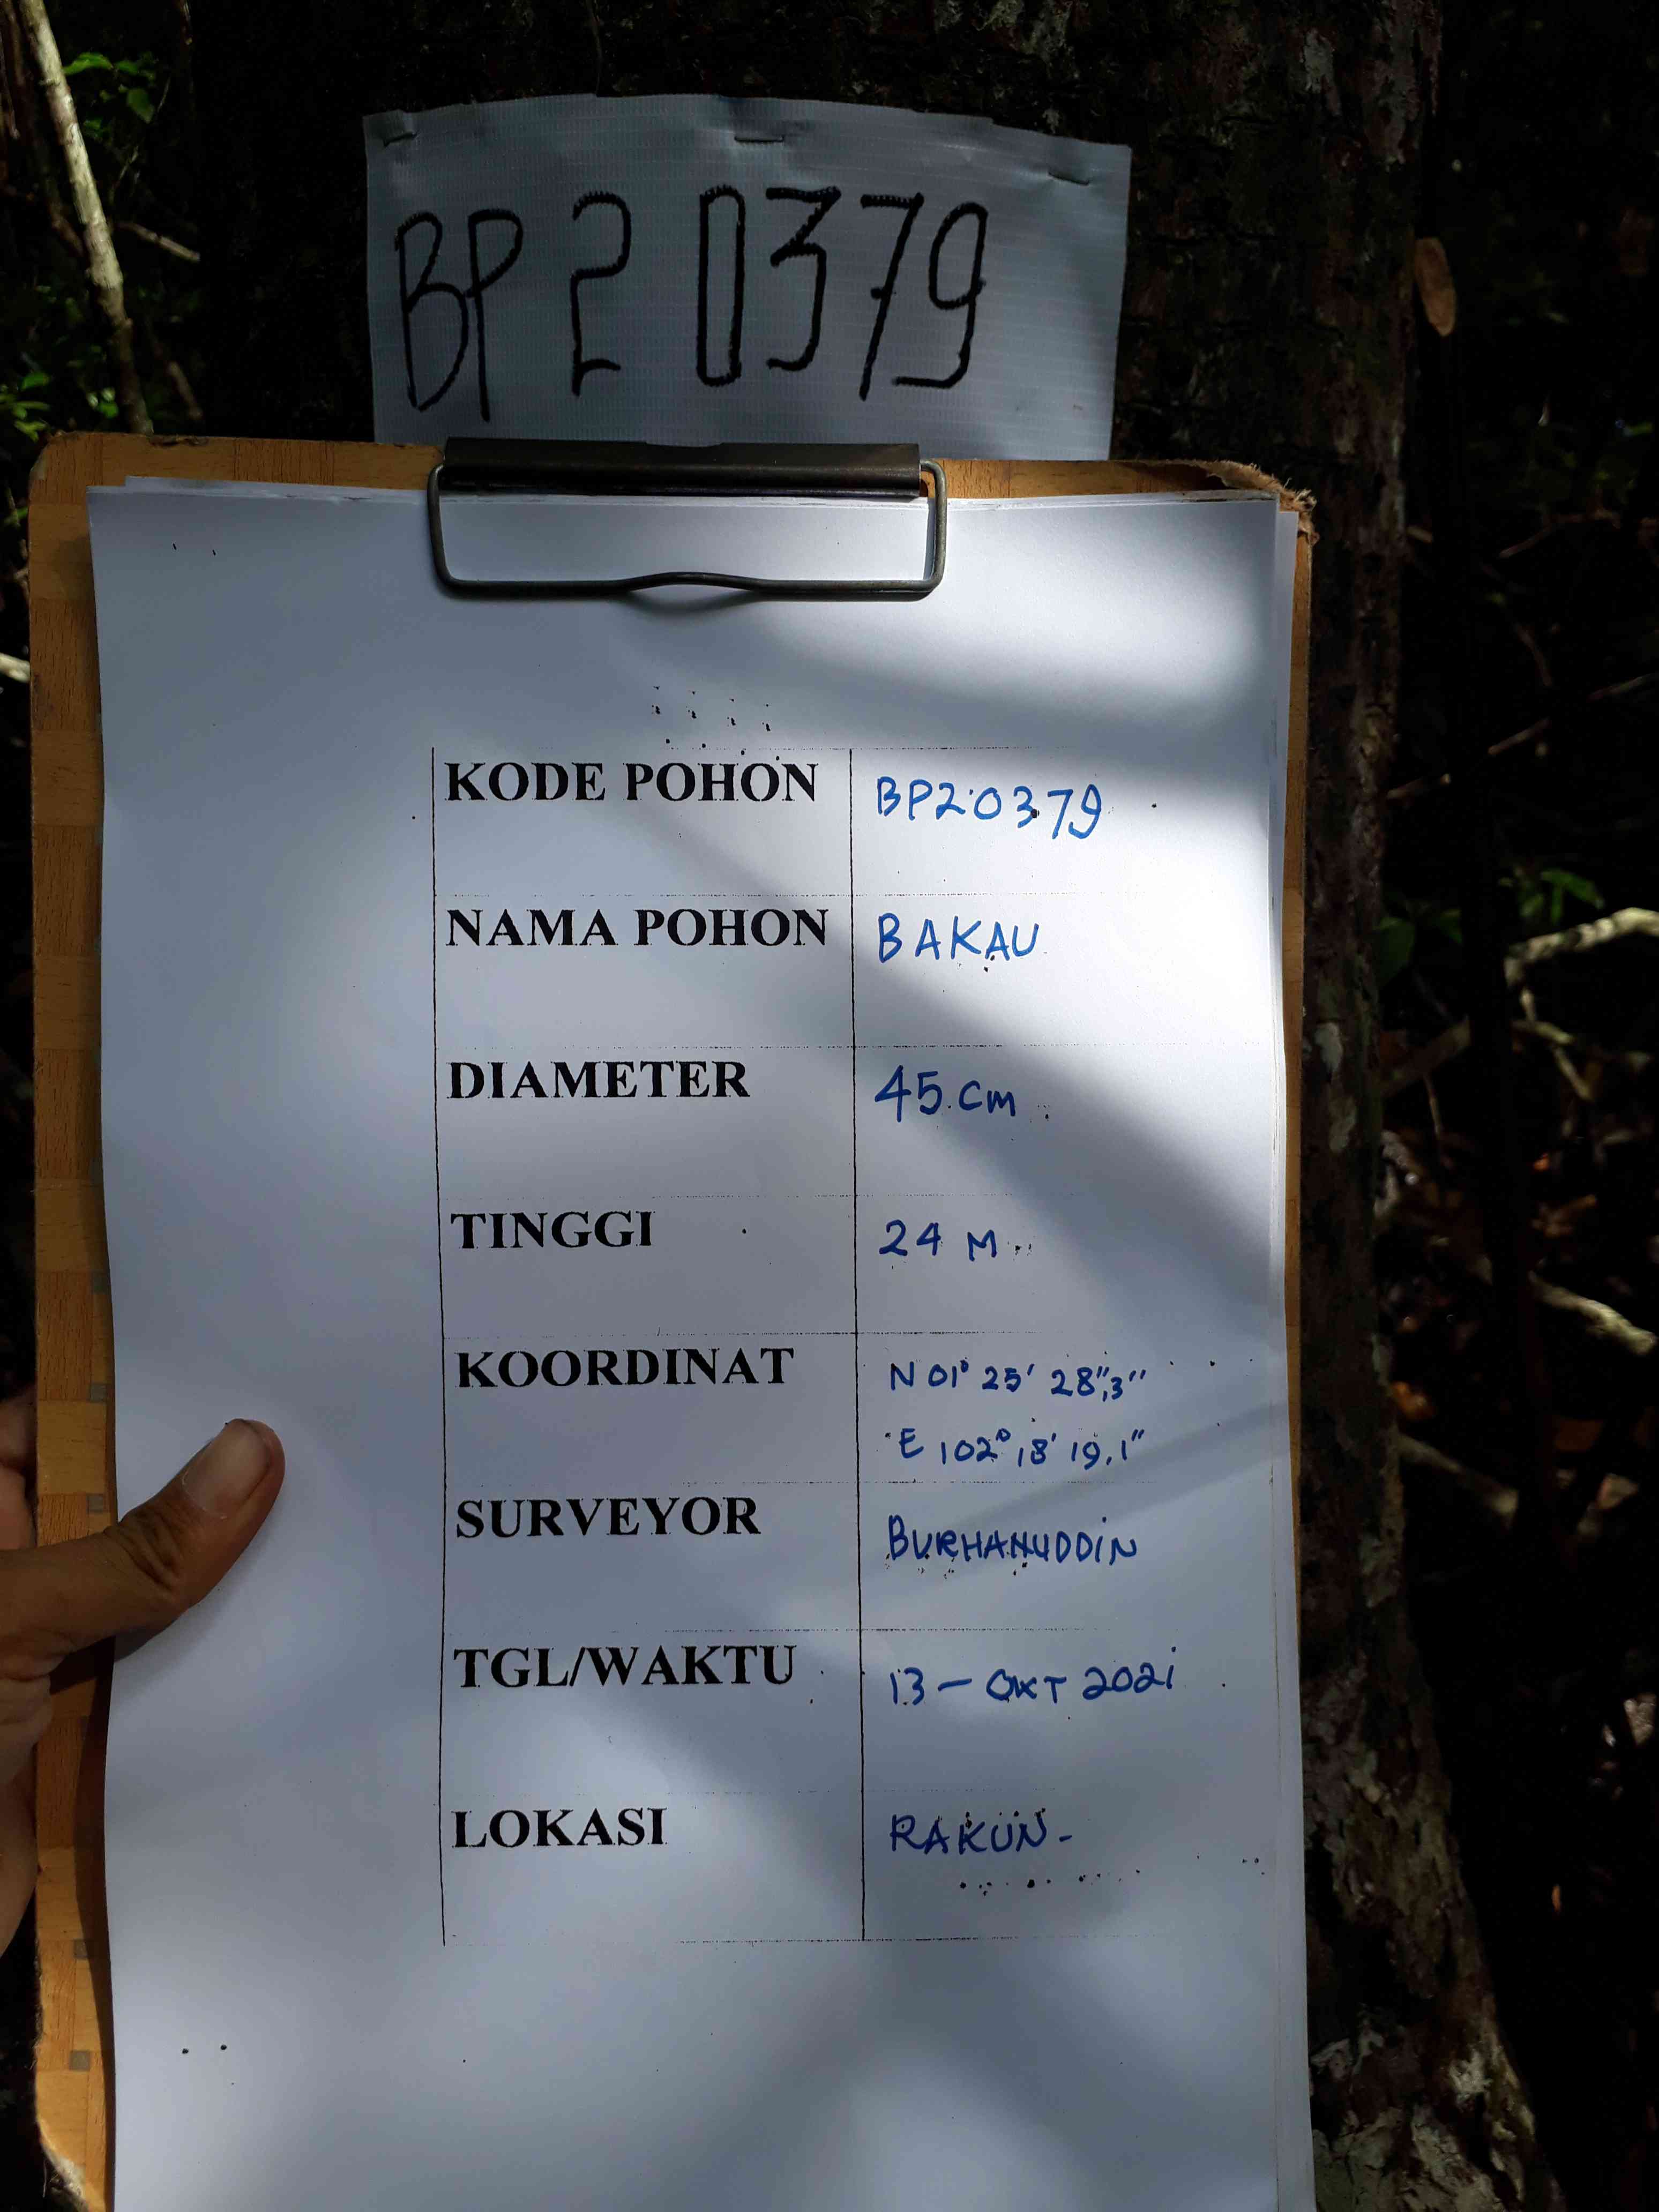 BP 2 0379
KODE POHON BP20379
NAMA POHON BAKAU
DIAMETER 45 cm
TINGGI 24 M
KOORDINAT N 01° 25' 28",3"
E 102° 18' 19,1"
SURVEYOR BURHANUDDIN
TGL/WAKTU 13 - OKT 2021
LOKASI RAKUN-